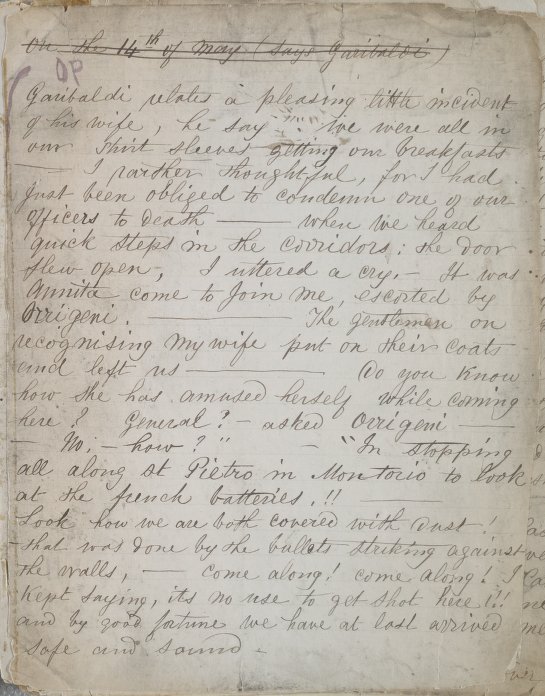 On the 14th of May (Says Garibaldi)
OP
Garibaldi relates a pleasing little incident
of his wife, he say we were all in
our Shirt sleeves getting our breakfasts
— I rarther thoughtful, for I had
just been obliged to condemn one of our
officers to death — when we heard
quick steps in the corridors: the door
flew open, I uttered a cry. — It was
Annita come to join me, escorted by
Orrigeni. — The gentlemen on
recognising my wife put on their coats
and left us — Do you know
how she has amused herself while coming
here? General? — asked Orrigeni —
— No, — how?" — "In stopping
all along St Pietro in Montorio to look
at the french batteries.!! —
Look how we are both covered with dust!
— that was done by the bullets striking against
the walls, — come along! come along! I
kept saying, its no use to get shot here!!!
and by good fortune we have at last arrived
safe and sound —